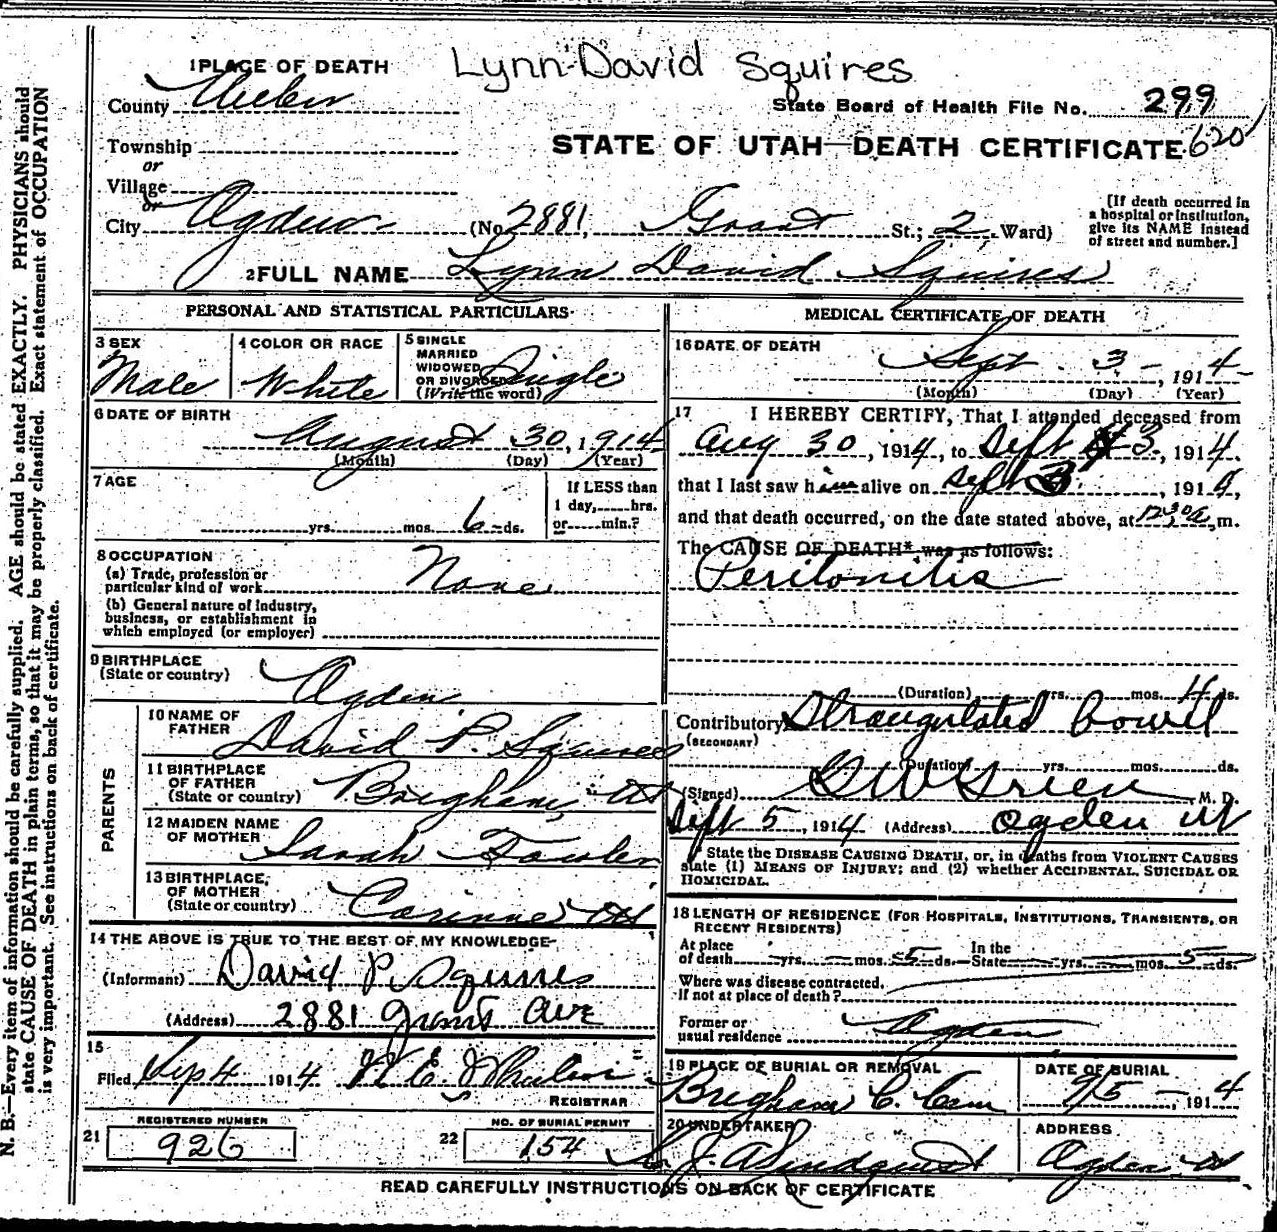 Lynn David Squires
1 PLACE OF DEATH
County Weber
State Board of Health File No. 299
Township
STATE OF UTAH—DEATH CERTIFICATE 620
or
Village
or
City Ogden (No. 2881, Grant St.; 2 Ward)
[If death occurred in a hospital or institution, give its NAME instead of street and number.]
2 FULL NAME Lynn David Squires
PERSONAL AND STATISTICAL PARTICULARS
3 SEX
Male
4 COLOR OR RACE
White
5 SINGLE
MARRIED
WIDOWED
OR DIVORCED
(Write the word)
Single
6 DATE OF BIRTH
August 30, 1914
(Month) (Day) (Year)
7 AGE
yrs. mos. 6 ds.
If LESS than
1 day, hrs.
or min.?
8 OCCUPATION
(a) Trade, profession or
particular kind of work None
(b) General nature of industry,
business, or establishment in
which employed (or employer)
9 BIRTHPLACE
(State or country)
Ogden
PARENTS
10 NAME OF
FATHER
David P. Squires
11 BIRTHPLACE
OF FATHER
(State or country)
Brigham, Ut
12 MAIDEN NAME
OF MOTHER
Sarah Fowler
13 BIRTHPLACE,
OF MOTHER
(State or country)
Corinne Ut
14 THE ABOVE IS TRUE TO THE BEST OF MY KNOWLEDGE
(Informant) David P Squires
(Address) 2881 Grant Ave
15
Filed Sep 4 1914
REGISTRAR
21 REGISTERED NUMBER
926
22 NO. OF BURIAL PERMIT
154
MEDICAL CERTIFICATE OF DEATH
16 DATE OF DEATH
Sept 3, 1914
(Month) (Day) (Year)
17 I HEREBY CERTIFY, That I attended deceased from
Aug 30, 1914, to Sept 3, 1914.
that I last saw him alive on Sept 3, 1914,
and that death occurred, on the date stated above, at 12:30 a.m.
The CAUSE OF DEATH* was as follows:
Peritonitis
(Duration) yrs. mos. 4 ds.
Contributory Strangulated bowel
(SECONDARY)
(Duration) yrs. mos. ds.
(Signed) G W Green M. D.
Sept 5, 1914 (Address) Ogden Ut
* State the DISEASE CAUSING DEATH, or, in deaths from VIOLENT CAUSES
state (1) MEANS OF INJURY; and (2) whether ACCIDENTAL, SUICIDAL OR
HOMICIDAL.
18 LENGTH OF RESIDENCE (FOR HOSPITALS, INSTITUTIONS, TRANSIENTS, OR
RECENT RESIDENTS)
At place
of death - yrs. - mos. 5 ds. In the
State yrs. mos. 5 ds.
Where was disease contracted,
if not at place of death?
Former or
usual residence Ogden
19 PLACE OF BURIAL OR REMOVAL
Brigham C. Cem
DATE OF BURIAL
9/5 - 1914
20 UNDERTAKER
J. A Lindquist
ADDRESS
Ogden Ut
READ CAREFULLY INSTRUCTIONS ON BACK OF CERTIFICATE
N. B.—Every item of information should be carefully supplied. AGE should be stated EXACTLY. PHYSICIANS should
state CAUSE OF DEATH in plain terms, so that it may be properly classified. Exact statement of OCCUPATION
is very important. See instructions on back of certificate.